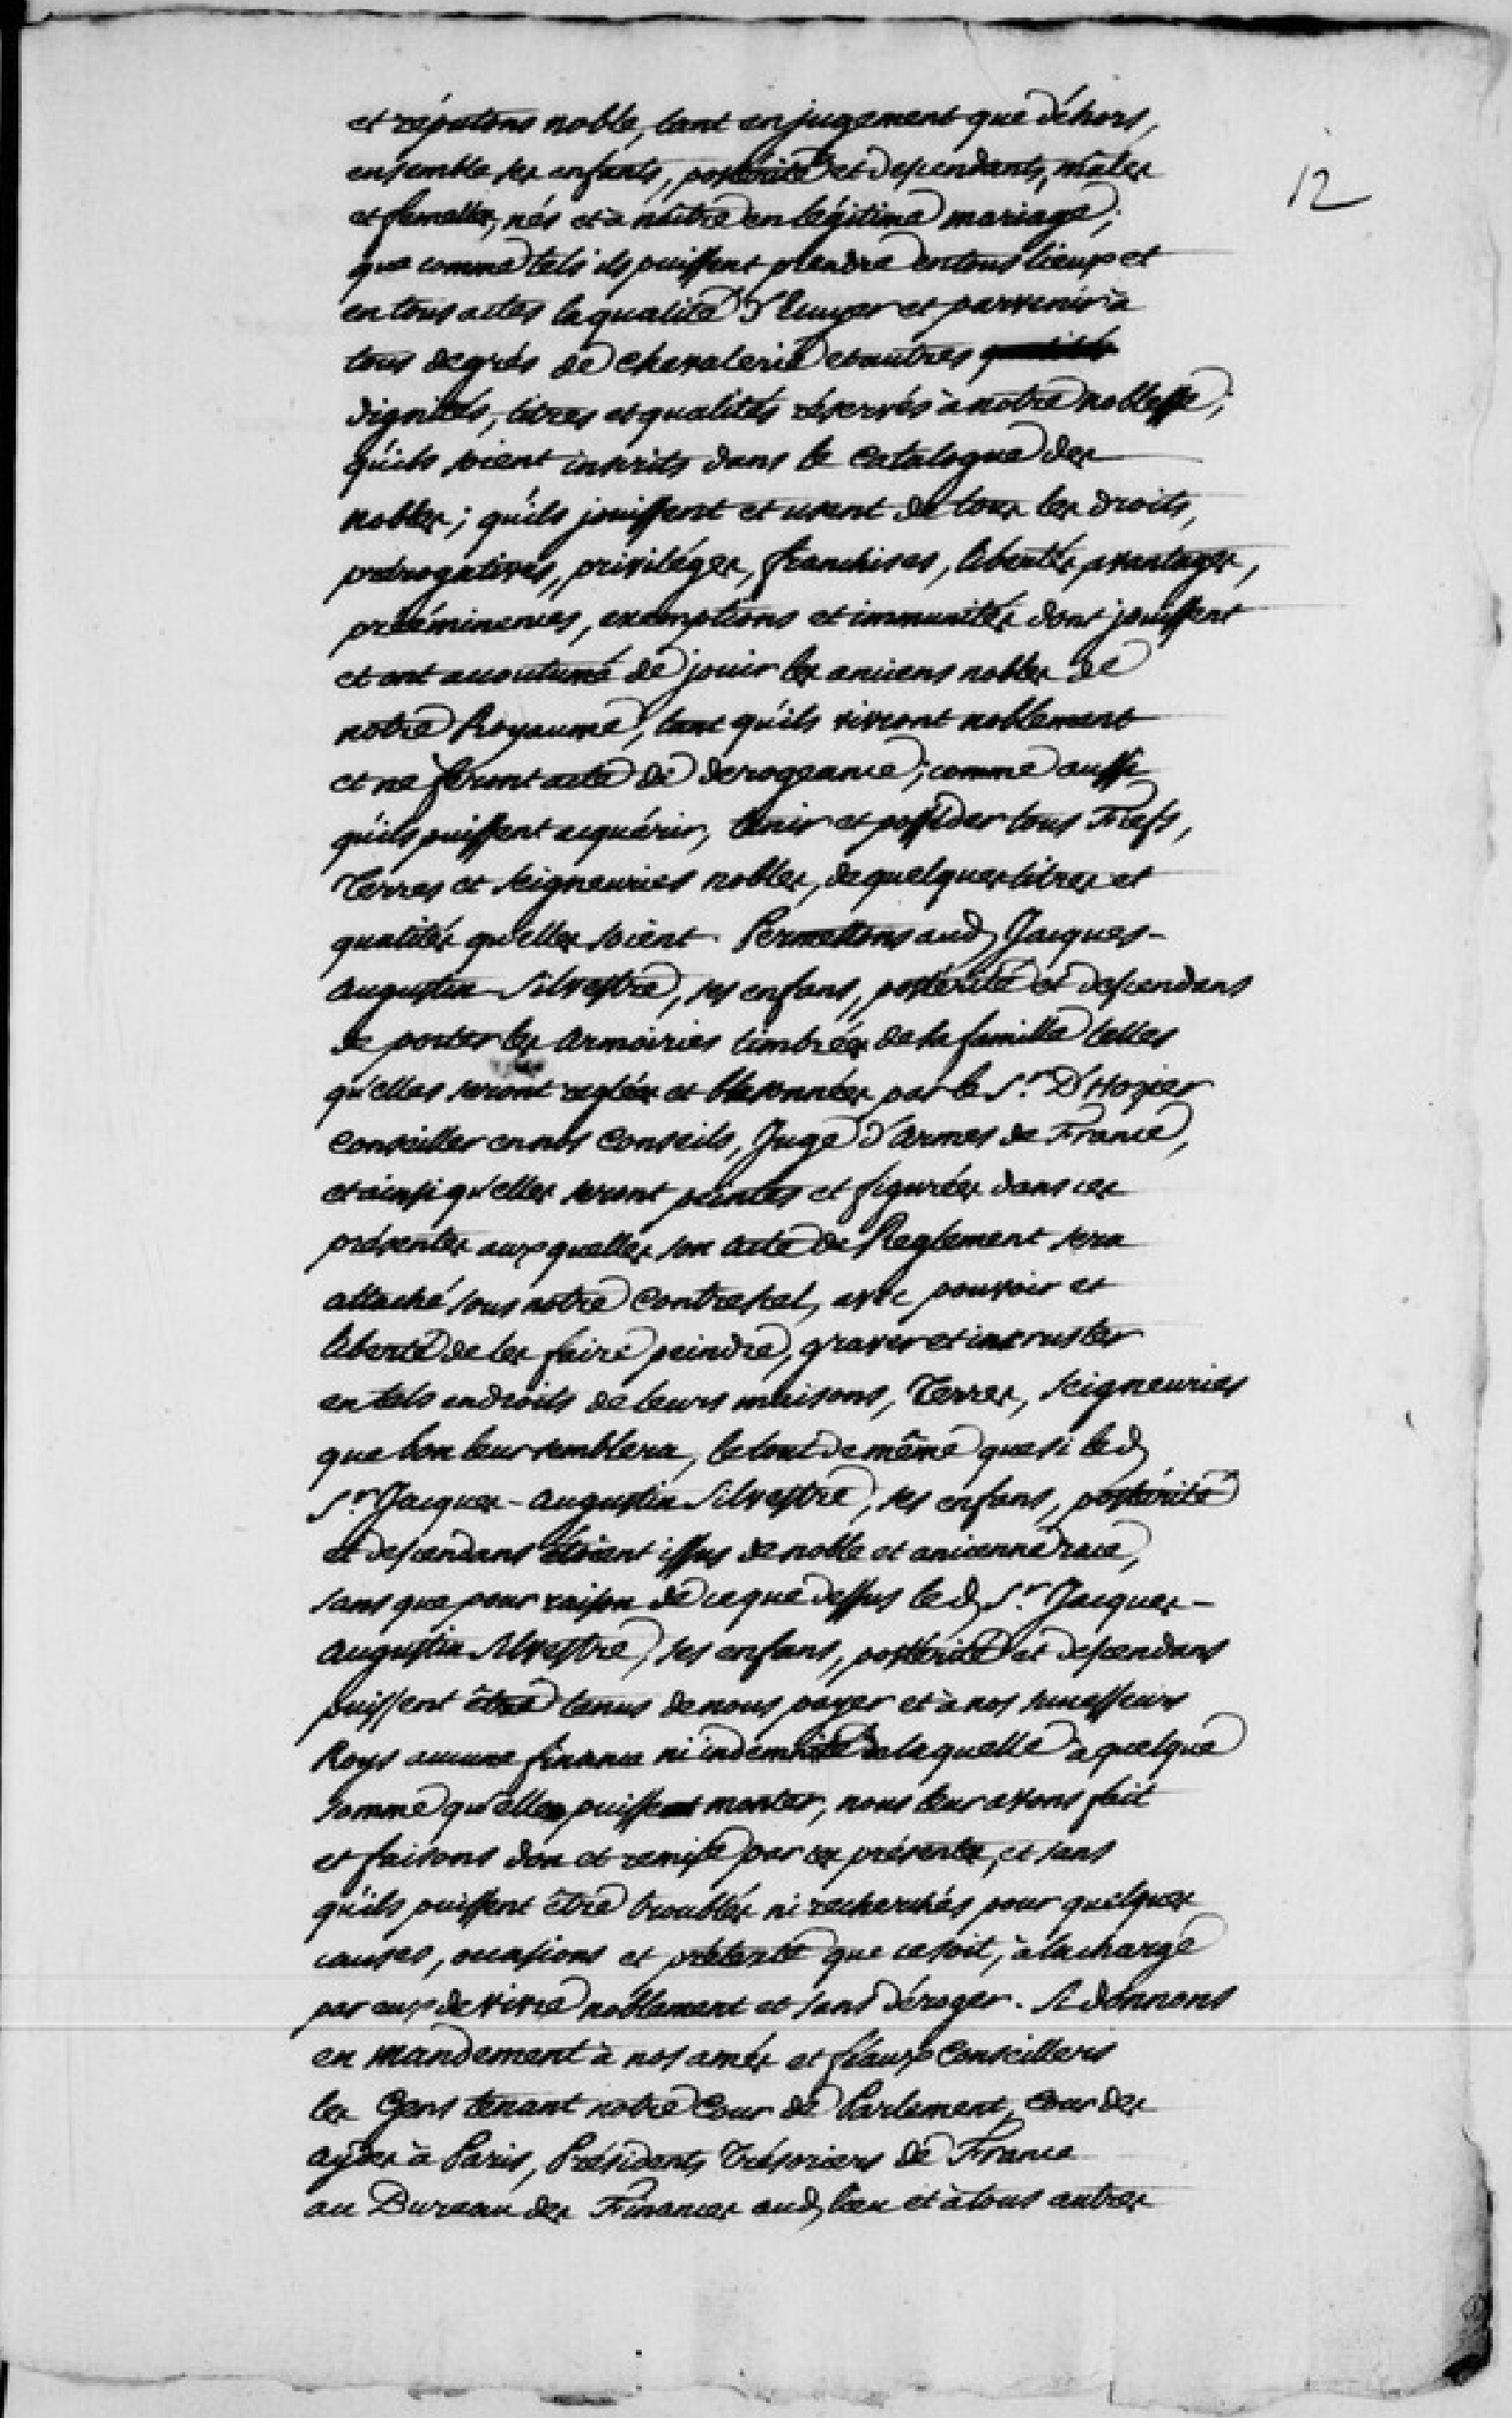 12
et réputons noble, tant en jugement que déhors,
ensemble ses enfants, postérité et descendants, mâles
et femelles, nés et à naître en légitime mariage;
que comme tels ils puissent prendre en tous lieux et
en tous actes la qualité d'Ecuyer et parvenir à
tous degrés de Chevalerie et autres
dignités, titres et qualités réservés à notre noblesse;
qu'ils soient inscrits dans le Catalogue des
nobles; qu'ils jouissent et usent de tous les droits,
prérogatives, privilèges, franchises, libertés, avantages,
prééminences, exemptions et immunités dont jouissent
et ont accoutumé de jouir les anciens nobles de
notre Royaume, tant qu'ils vivront noblement
et ne feront acte de derogeance; comme aussi
qu'ils puissent acquérir, tenir et posséder tous Fiefs,
Terres et seigneuries nobles, de quelques titres et
qualités qu'elles soient. Permettons aud. Jacques-
Augustin Silvestre, ses enfans, postérité et descendans
de porter les Armoiries timbrées de sa famille telles
qu'elles seront reglées et blasonnées par le S.r D'Hozier
Conseiller en nos Conseils, Juge d'Armes de France,
et ainsi qu'elles seront peintes et figurées dans ces
présentes auxquelles son acte de Reglement sera
attaché sous notre Contrescel, avec pouvoir et
liberté de les faire peindre, graver et incruster
en tels endroits de leurs maisons, Terres, seigneuries
que bon leur semblera, le tout de même que si led.
S.r Jacques-Augustin Silvestre, ses enfans, postérité
et descendans étoient issus de noble et ancienne race,
sans que pour raison de ce que dessus led. S.r Jacques-
Augustin Silvestre, ses enfans, postérité et descendans
puissent être tenus de nous payer et à nos successeurs
Roys aucune finance ni indemnité de laquelle à quelque
somme qu'elle puisse monter, nous leur avons fait
et faisons don et remise par ces présentes, et sans
qu'ils puissent être troublés ni recherchés pour quelques
causes, occasions et prétexte que ce soit, à la charge
par eux de vivre noblement et sans déroger. Si donnons
en mandement à nos amés et féaux Conseillers
les Gens tenant notre Cour de Parlement, Cour des
aydes à Paris, Présidents Trésoriers de France
au Bureau des Finances aud. lieu et à tous autres